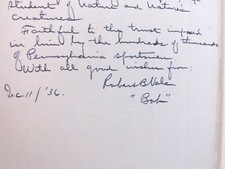 student of Nature and Nature's
creatures
Faithful to the trust imposed
in him by the hundreds of thousands
of Pennsylvania sportsmen
With all good wishes from:
Robert B Vale
"Bob"
Dec 11/'36.